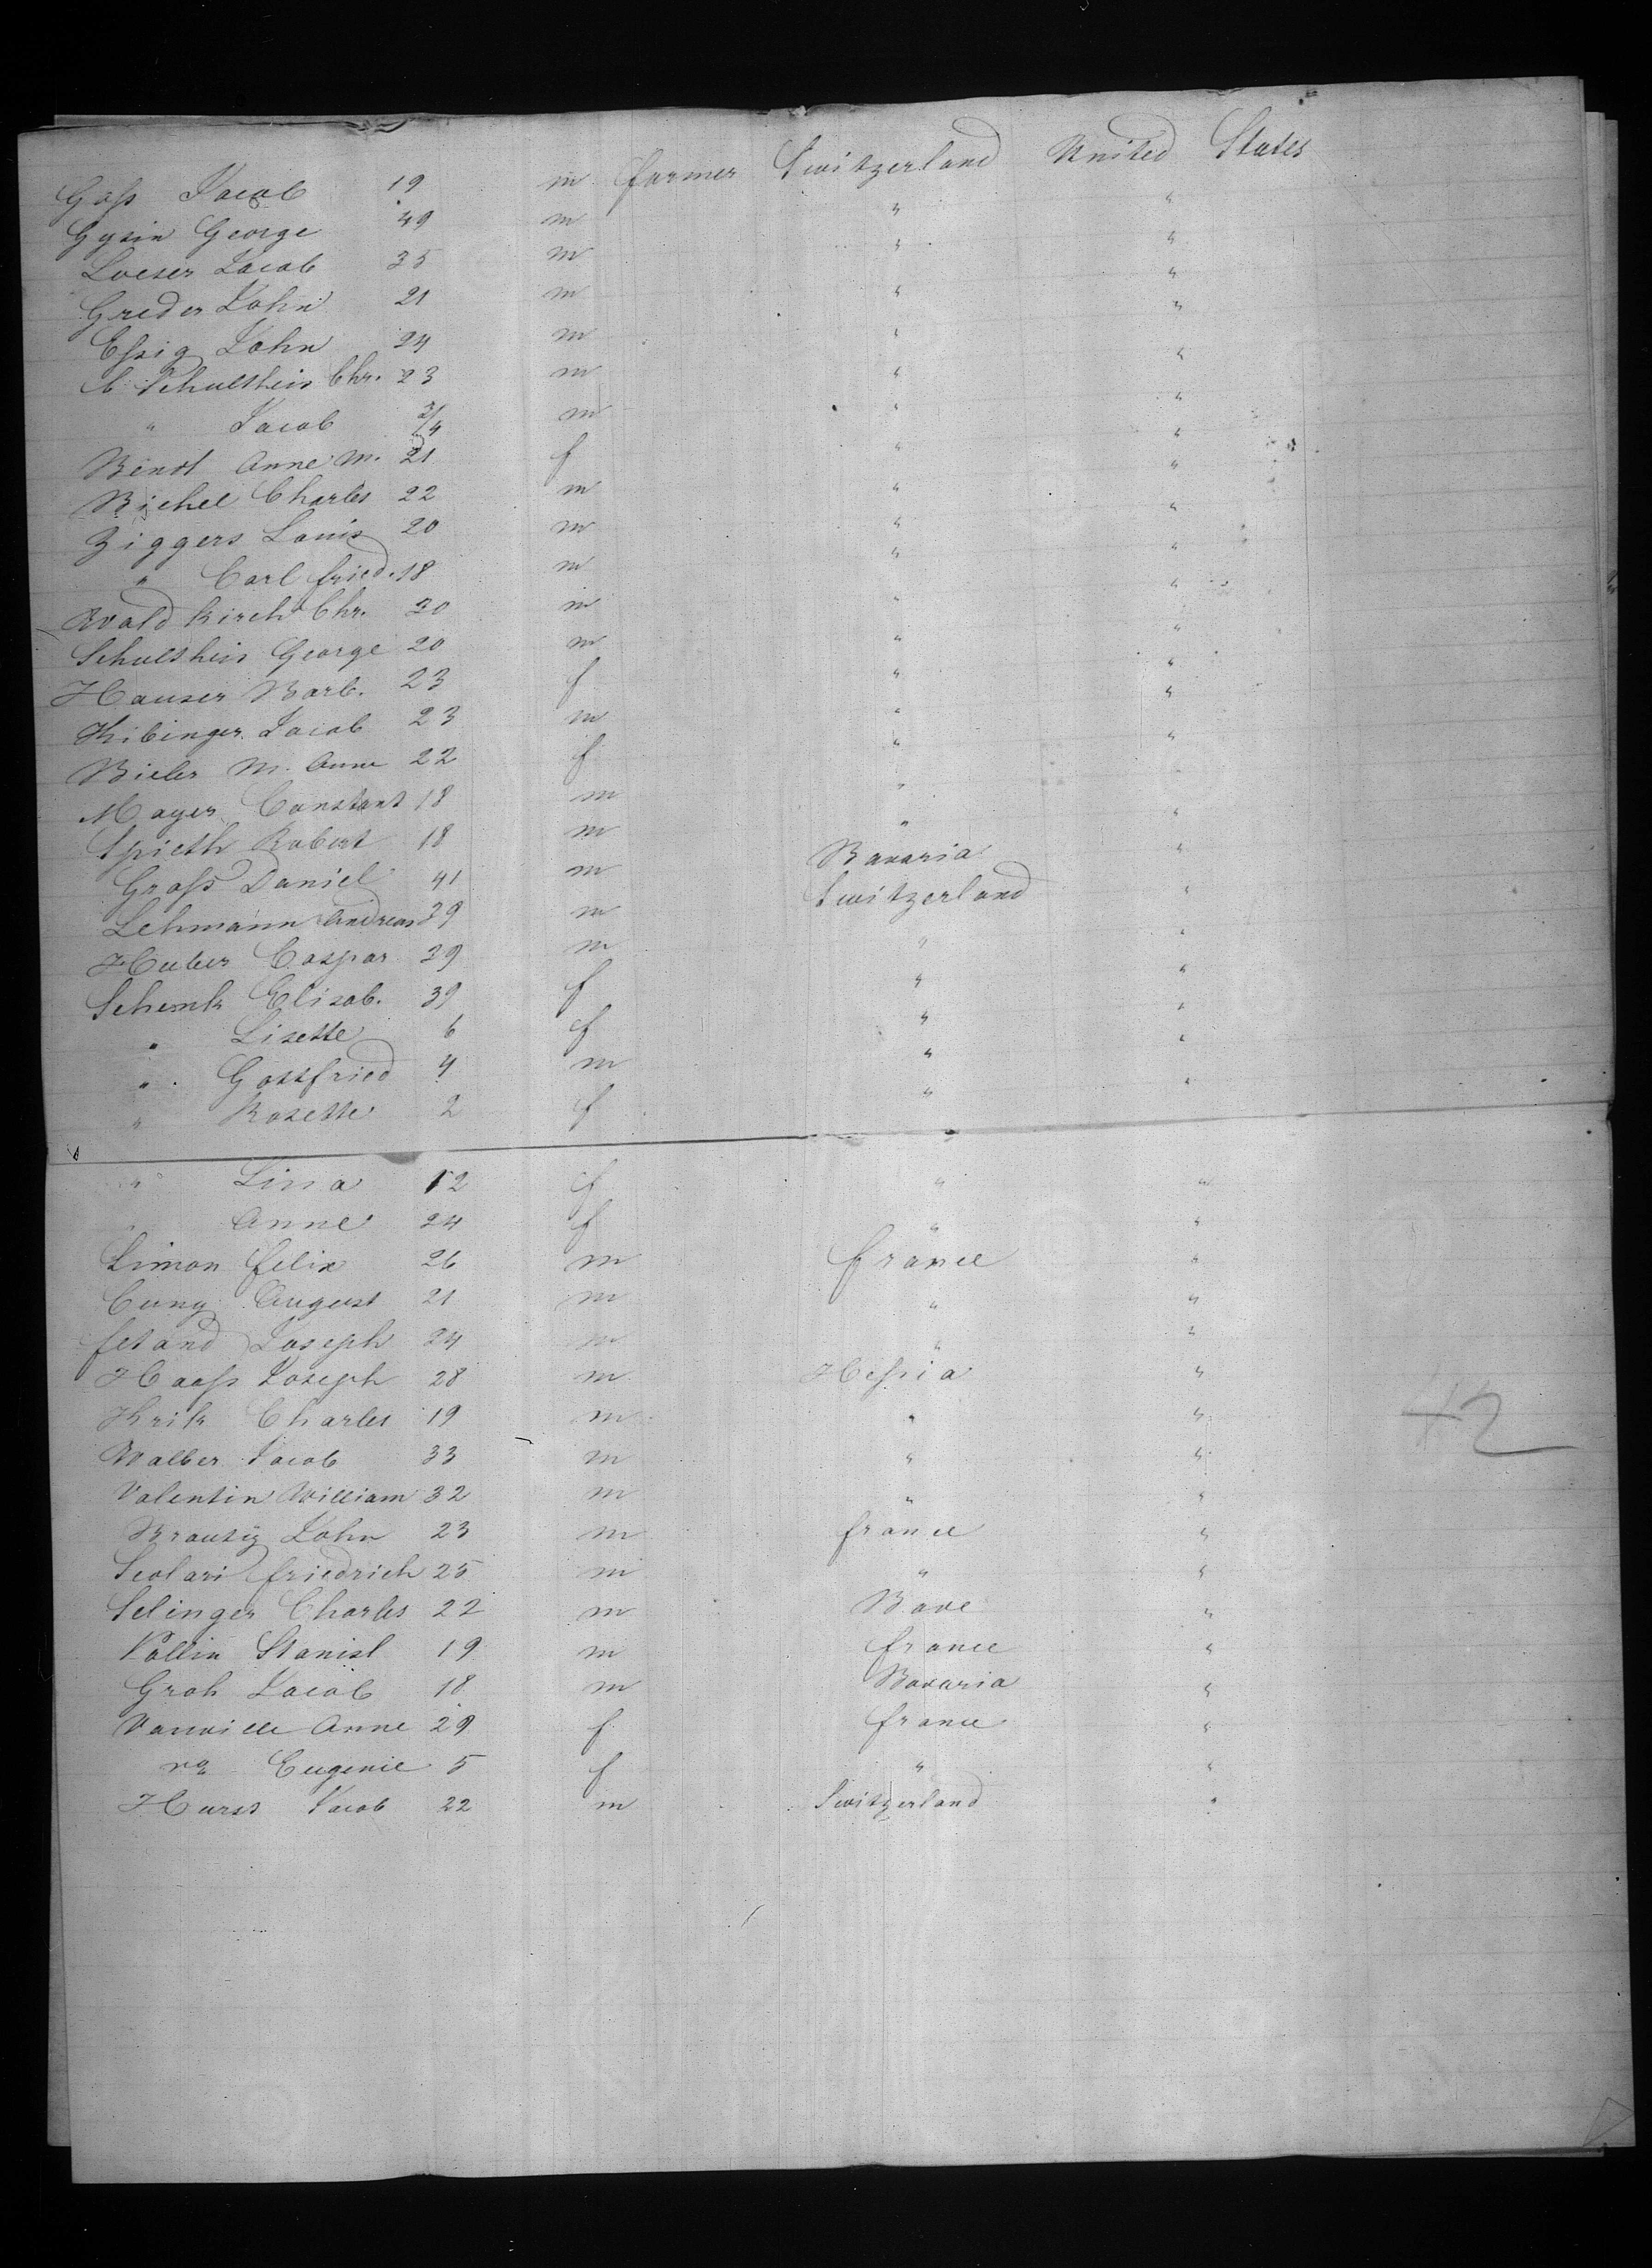 Gass Jacob 19 m farmer Switzerland United States
Gysin George 49 m " "
Loeser Jacob 35 m " "
Greder John 21 m " "
Essig John 24 m " "
Schultheis Chr. 23 m " "
" Jacob 3/4 m " "
Anne M. 21 f " "
Bichel Charles 22 m " "
Ziggers Louis 20 m " "
" Carl fried. 18 m " "
Waldkirch Chr. 30 m " "
Schultheis George 20 m " "
Hauser Barb. 23 f " "
Kibinger Jacob 23 m " "
Bieler M. Anne 22 f " "
Mayer Constant 18 m " "
Spieth Robert 18 m " "
Gross Daniel 41 m Bavaria "
Lehmann Andreas 39 m Switzerland "
Huber Caspar 29 m " "
Schenk Elisab. 39 f " "
" Lisette 6 f " "
" Gottfried 4 m " "
" Rosette 2 f " "
" Lina 12 f " "
" Anne 24 f " "
Simon felix 26 m france "
Cuny August 21 m " "
fetand Joseph 24 m " "
Haass Joseph 28 m Hessia "
Krik Charles 19 m " "
Walber Jacob 33 m " "
Valentin William 32 m " "
John 23 m france "
Scolari friedrich 25 m " "
Selinger Charles 22 m "
Vallin Stanisl 19 m france "
Groh Jacob 18 m Bavaria "
Vauville Anne 29 f france "
Eugenie 5 f " "
Hurst Jacob 22 m Switzerland "
42